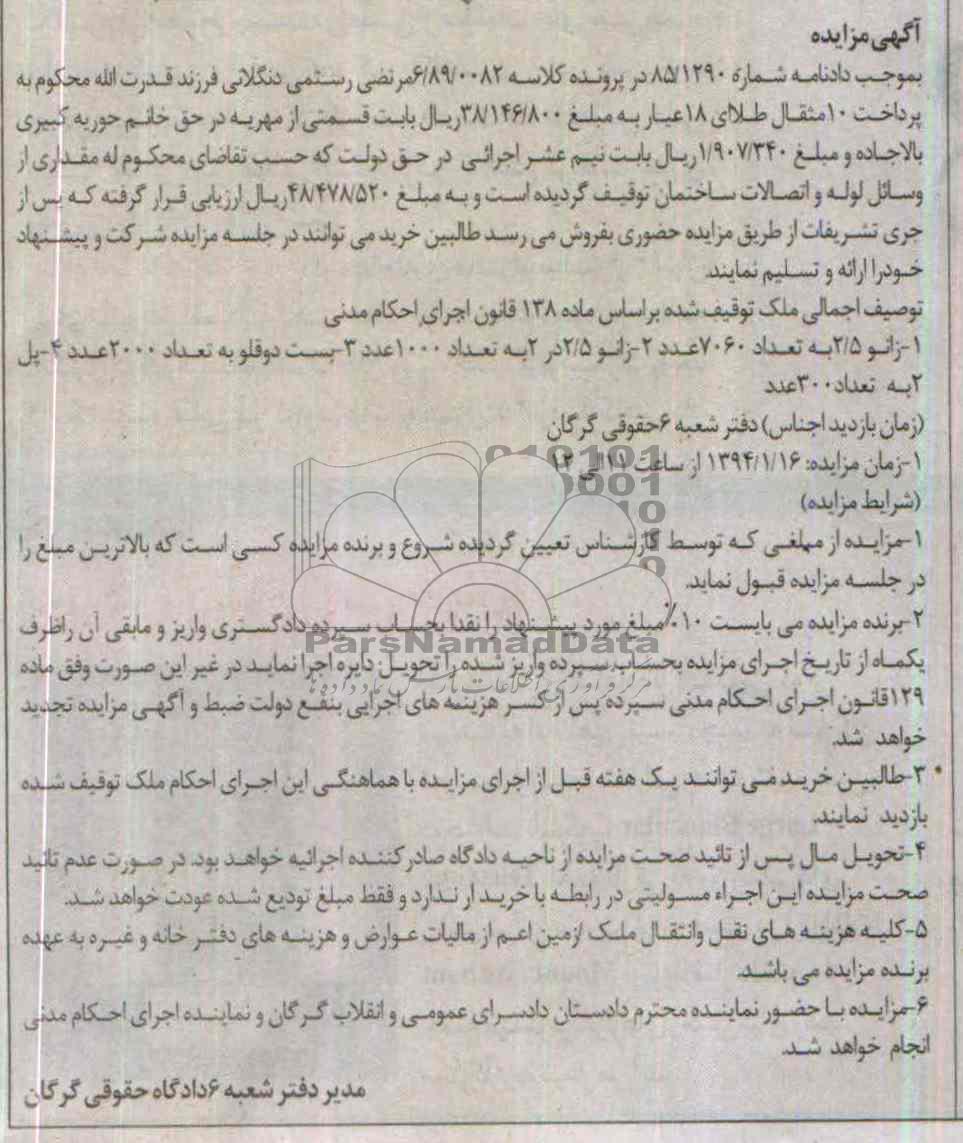 آگهی مزایده
بموجب دادنامه شماره ۸۵/۱۲۹۰ در پرونده کلاسه ۶/۸۹/۰۰۸۲مرتضی رستمی دنگلانی فرزند قدرت الله محکوم به
پرداخت ۱۰مثقال طلاای ۱۸عیار به مبلغ ۳۸/۱۴۶/۸۰۰ریال بابت قسمتی از مهریه در حق خانم حوریه کبیری
بالاجاده و مبلغ ۱/۹۰۷/۳۴۰ریال بابت نیم عشر اجرائی در حق دولت که حسب تقاضای محکوم له مقداری از
وسائل لوله و اتصالات ساختمان توقیف گردیده است و به مبلغ ۴۸/۴۷۸/۵۲۰ریال ارزیابی قرار گرفته که پس از
جری تشریفات از طریق مزایده حضوری بفروش می رسد طالبین خرید می توانند در جلسه مزایده شرکت و پیشنهاد
خودرا ارائه و تسلیم نمایند.
توصیف اجمالی ملک توقیف شده براساس ماده ۱۳۸ قانون اجرای احکام مدنی
۱-زانو ۲/۵به تعداد ۷۰۶۰عدد ۲-زانو ۲/۵در ۲به تعداد ۱۰۰۰عدد ۳-بست دوقلو به تعداد ۲۰۰۰عدد ۴-پل
۲به تعداد۳۰۰عدد
(زمان بازدید اجناس) دفتر شعبه ۶حقوقی گرگان
۱-زمان مزایده: ۱۳۹۴/۱/۱۶ از ساعت ۱۱الی ۱۲
(شرایط مزایده)
۱-مزایده از مبلغی که توسط کارشناس تعیین گردیده شروع و برنده مزایده کسی است که بالاترین مبلغ را
در جلسه مزایده قبول نماید.
۲-برنده مزایده می بایست ۱۰٪مبلغ مورد پیشنهاد را نقدا بحساب سپرده دادگستری واریز و مابقی آن راظرف
یکماه از تاریخ اجرای مزایده بحساب سپرده واریز شده را تحویل دایره اجرا نماید در غیر این صورت وفق ماده
۱۲۹قانون اجرای احکام مدنی سپرده پس از کسر هزینه های اجرایی بنفع دولت ضبط و آگهی مزایده تجدید
خواهد شد.
۳-طالبین خرید می توانند یک هفته قبل از اجرای مزایده با هماهنگی این اجرای احکام ملک توقیف شده
بازدید نمایند.
۴-تحویل مال پس از تائید صحت مزایده از ناحیه دادگاه صادر کننده اجرائیه خواهد بود. در صورت عدم تائید
صحت مزایده این اجراء مسولیتی در رابطه با خریدار ندارد و فقط مبلغ تودیع شده عودت خواهد شد.
۵-کلیه هزینه های نقل وانتقال ملک ازمین اعم از مالیات عوارض و هزینه های دفتر خانه و غیره به عهده
برنده مزایده می باشد.
۶-مزایده با حضور نماینده محترم دادستان دادسرای عمومی و انقلاب گرگان و نماینده اجرای احکام مدنی
انجام خواهد شد.
مدیر دفتر شعبه ۶دادگاه حقوقی گرگان
ParsNamadData